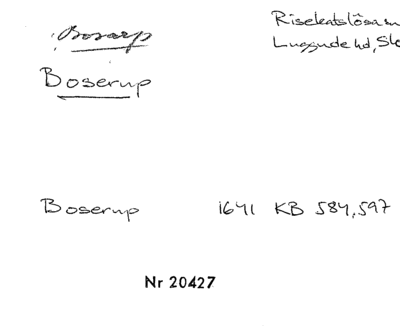 Bosarp
Riseketslösa
Luggude hd, Sk
Boserup
Boserup 1641 KB 584, 597
Nr 20427